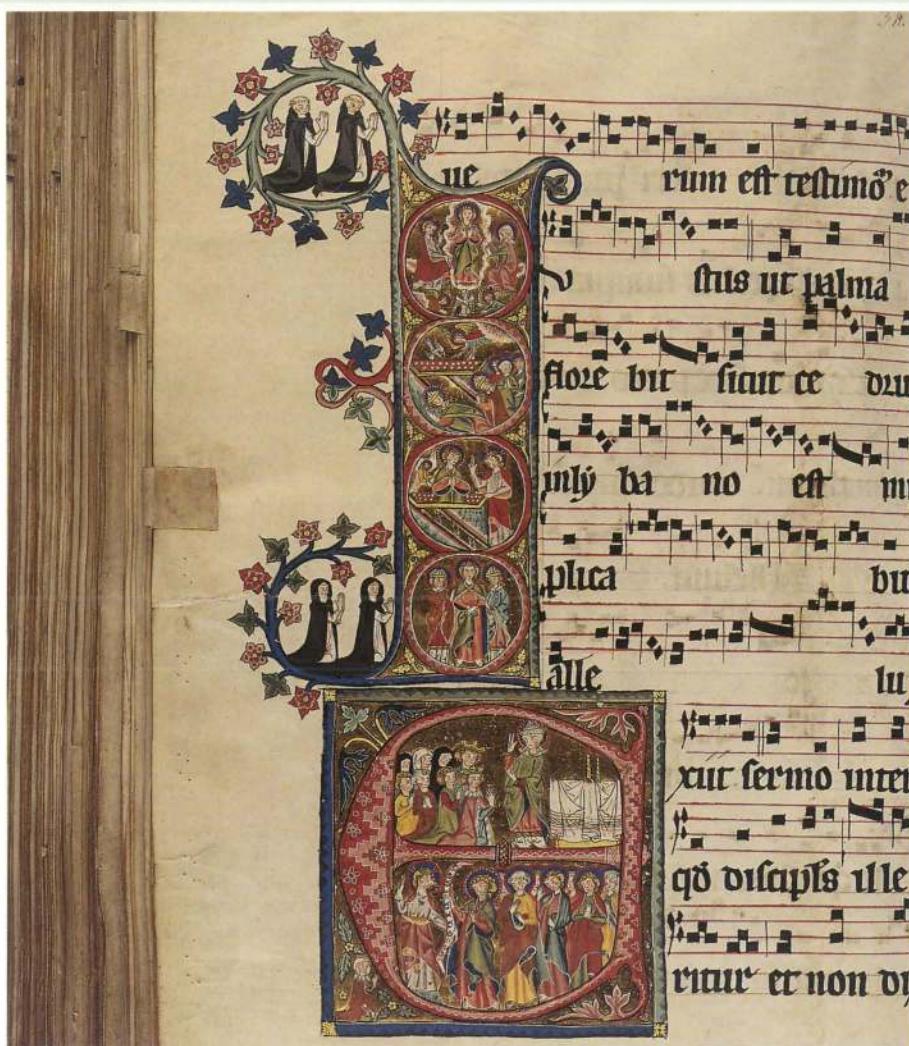 ue rum est testimō e
stus ut palma
flore bit sicut ce dru
inly ba no est
plica bit
alle lu
xiit sermo inter
qd̄ discipls ille
ritur et non